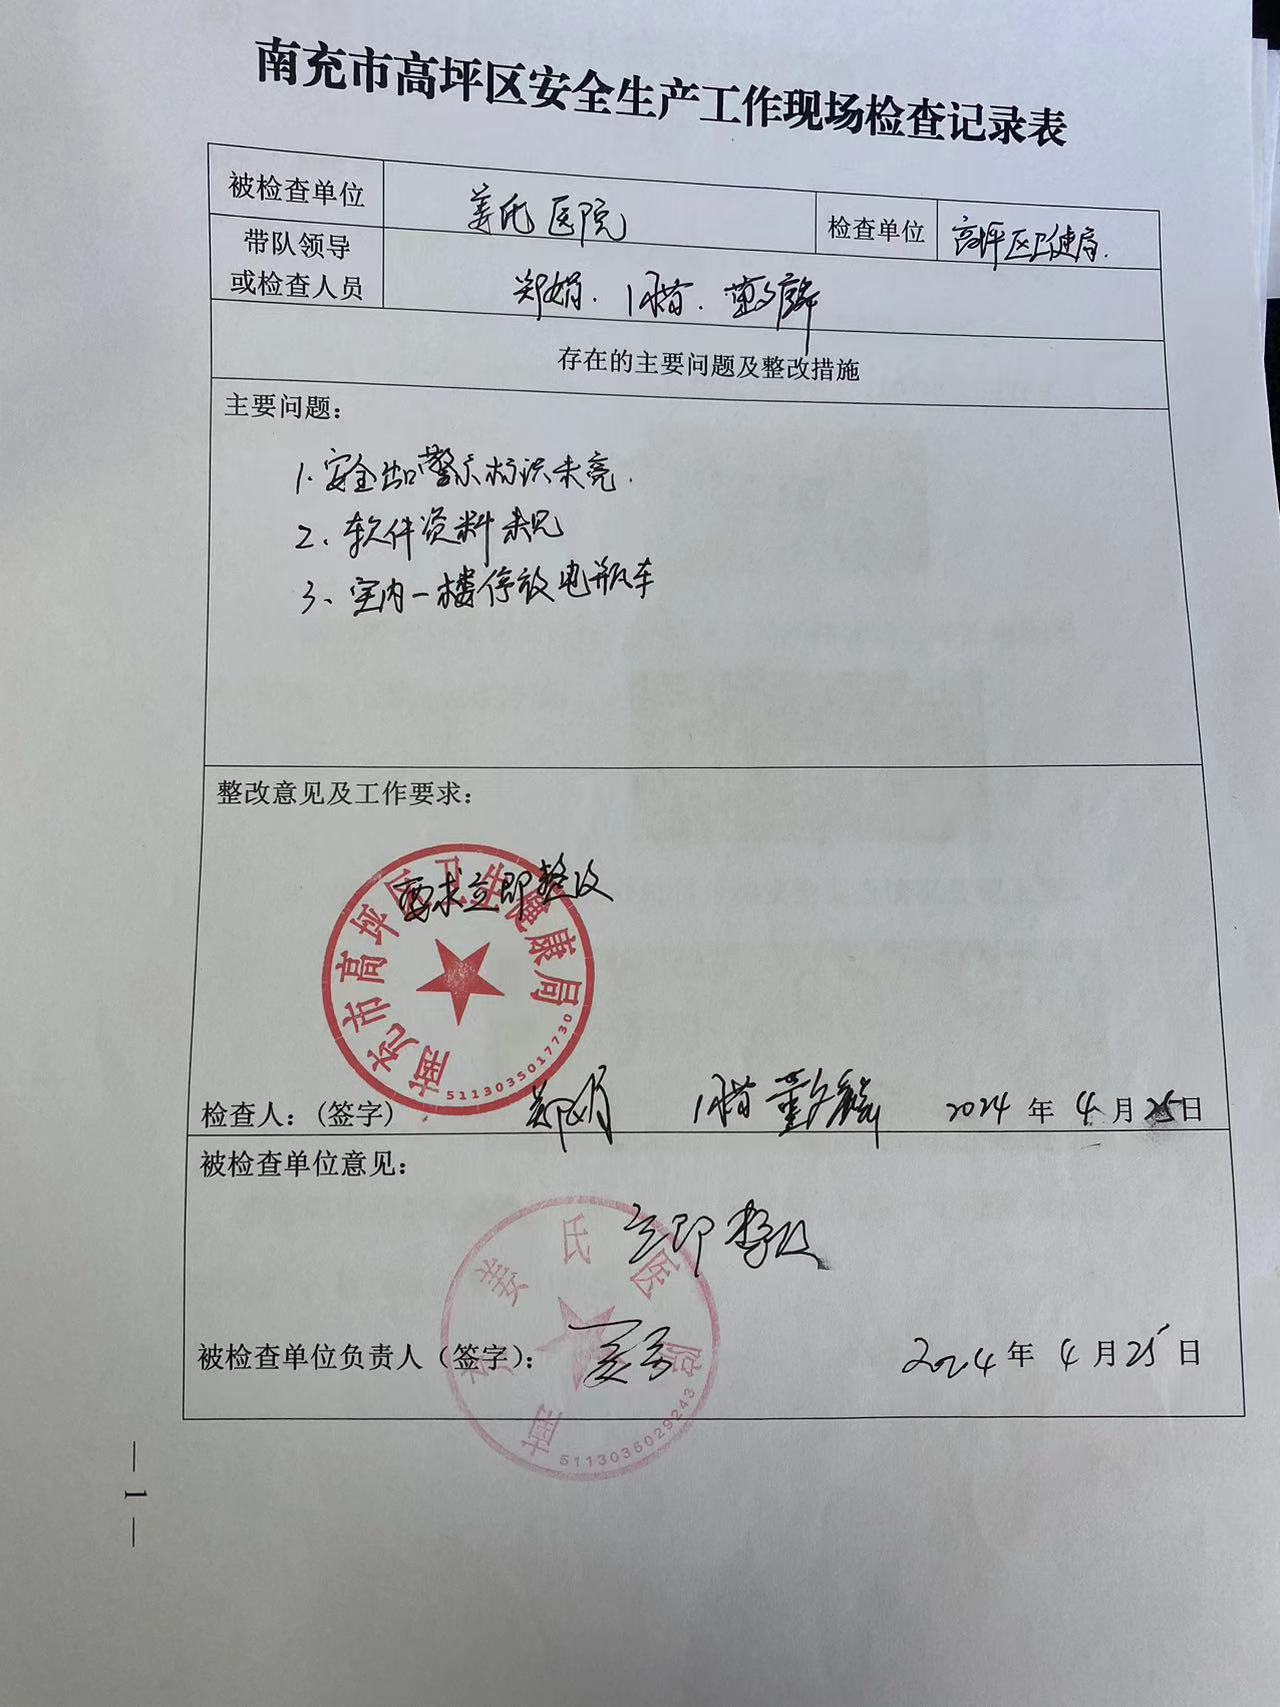 南充市高坪区安全生产工作现场检查记录表
被检查单位 姜氏医院 检查单位 高坪区卫健局.
带队领导
或检查人员 郑娟.
存在的主要问题及整改措施
主要问题：
1.安全出口警示标识未亮.
2、软件资料未见
3、室内一楼停放电瓶车
整改意见及工作要求：
要求立即整改
南充市高坪区卫生健康局
5113035017730
检查人：(签字) 郑娟 2024年4月25日
被检查单位意见：
立即整改
南充姜氏医院
5113035029243
被检查单位负责人（签字）： 2024年4月25日
— 1 —